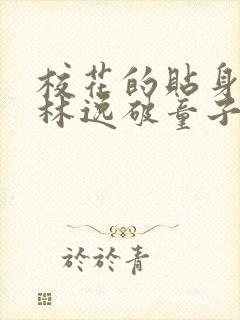 校花的貼身
林逸破童子
於於青